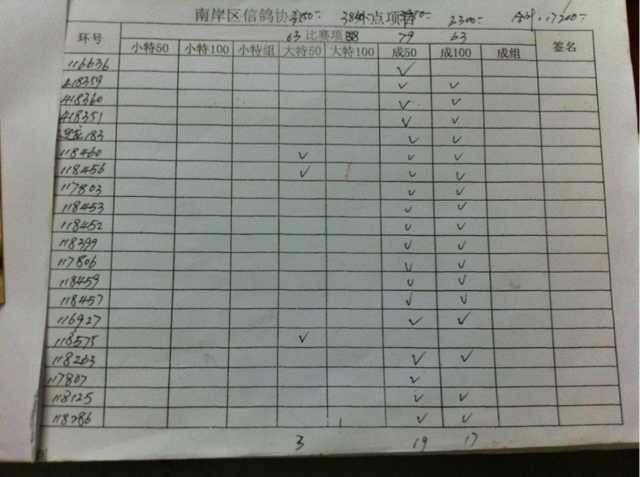 南岸区信鸽协 点项 2300-
环号 比赛项 签名
63 79 63
小特50 小特100 小特组 大特50 大特100 成50 成100 成组
116636 ✓
418359 ✓ ✓
418360 ✓ ✓
418351 ✓ ✓
183 ✓ ✓
118460 ✓ ✓ ✓
118456 ✓ ✓ ✓
117803 ✓ ✓
118453 ✓ ✓
118452 ✓ ✓
118399 ✓ ✓
117806 ✓ ✓
118459 ✓ ✓
118457 ✓ ✓
116927 ✓ ✓
118575 ✓
118263 ✓ ✓
117807 ✓
118125 ✓ ✓
118786 ✓ ✓
3 19 17